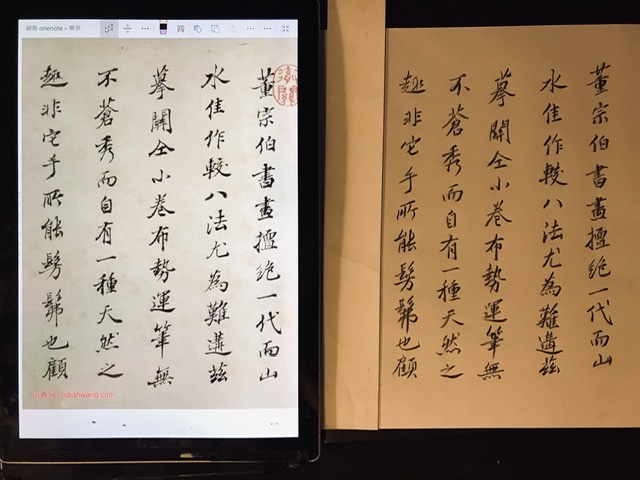 董宗伯書畫擅絶一代而山
水佳作較八法尤為難遘兹
摹關仝小卷布勢運筆無
不蒼秀而自有一種天然之
趣非它手所能髣髴也顧
董宗伯書畫擅絶一代而山
水佳作較八法尤為難遘兹
摹關仝小卷布勢運筆無
不蒼秀而自有一種天然之
趣非它手所能髣髴也顧